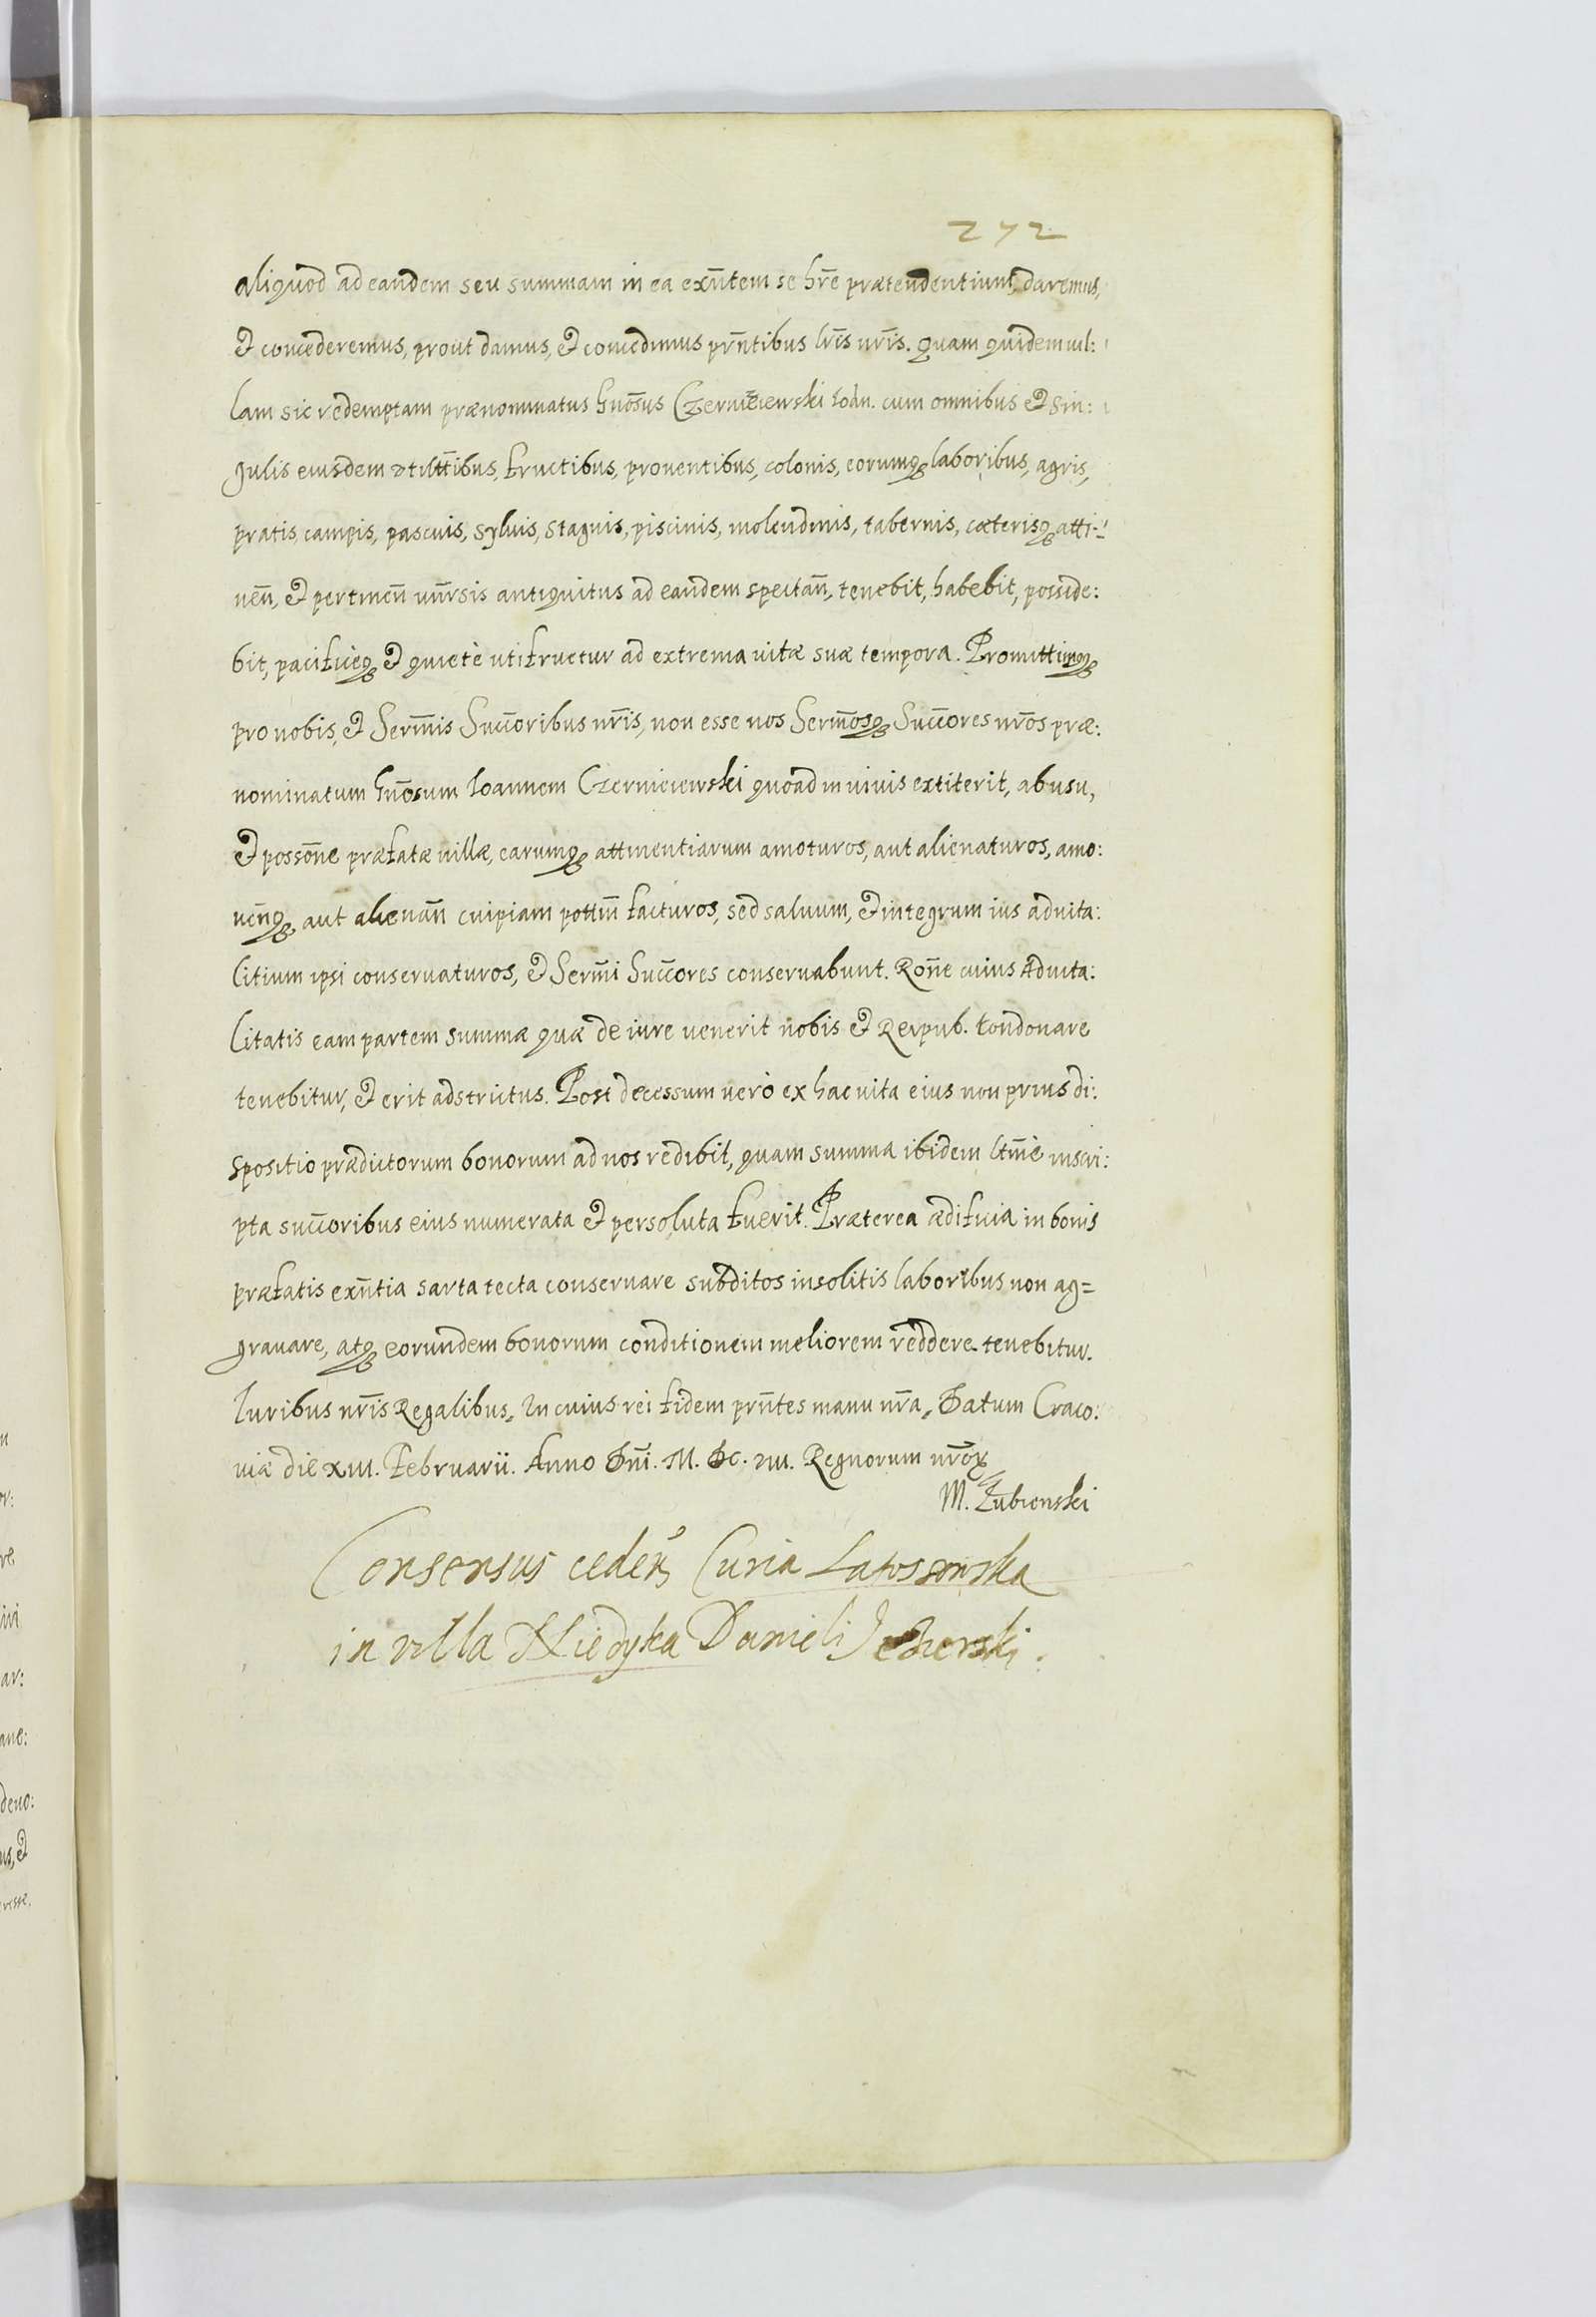 272
aliquod ad eandem seu summam in ea exñtem se hr̃e prætendentium, daremus,
et concederemus, prout damus, et concedimus prñtibus lr̃is nr̃is. Quam quidem vil:
lam sic redemptam prænominatus Gnõsus Czernieiewski Ioan. cum omnibus et sin:
gulis eiusdem vtilt̃tibus, fructibus, prouentibus, colonis, eorumq laboribus, agris,
pratis, campis, pascuis, syluis, stagnis, piscinis, molendinis, tabernis, cæterisq atti:
neñ, et pertineñ vnr̃sis antiquitus ad eandem spectañ, tenebit, habebit, posside:
bit, pacificeq et quietè utifruetur ad extrema uitæ suæ tempora. Promittimq
pro nobis, et Serm̃is Succ̃oribus nr̃is, non esse nos Serm̃osq Succ̃ores nr̃os præ:
nominatum Gnõsum Ioannem Czerniciewski quoad in uiuis extiterit, ab usu,
et possõne præfatæ uillæ, earumq attinentiarum amoturos, aut alienaturos, amo:
ueñq aut alienañ cuipiam pottm̃ facturos, sed saluum, et integrum ius aduita:
litium ipsi conseruaturos, et Serm̃i Succ̃ores conseruabunt. Rõne cuius Aduita:
litatis eam partem summæ quæ de iure uenerit nobis et Reipub. condonare
tenebitur, et erit adstrictus. Post decessum uerò ex hac uita eius non prius di:
spositio prædictorum bonorum ad nos redibit, quam summa ibidem ltm̃è inscri:
pta succ̃oribus eius numerata et persoluta fuerit. Præterea ædificia in bonis
præfatis exñtia sarta tecta conseruare subditos insolitis laboribus non ag=
grauare, atq eorundem bonorum conditionem meliorem reddere tenebitur.
Iuribus nr̃is Regalibus, In cuius rei fidem prñtes manu nr̃a, Datum Craco:
uiæ die XIII. Februarii. Anno Dñi. M. DC. Regnorum nr̃or
M. Łubienski
Consensus ceden Curia Latossowska
in villa Niedyka Danieli